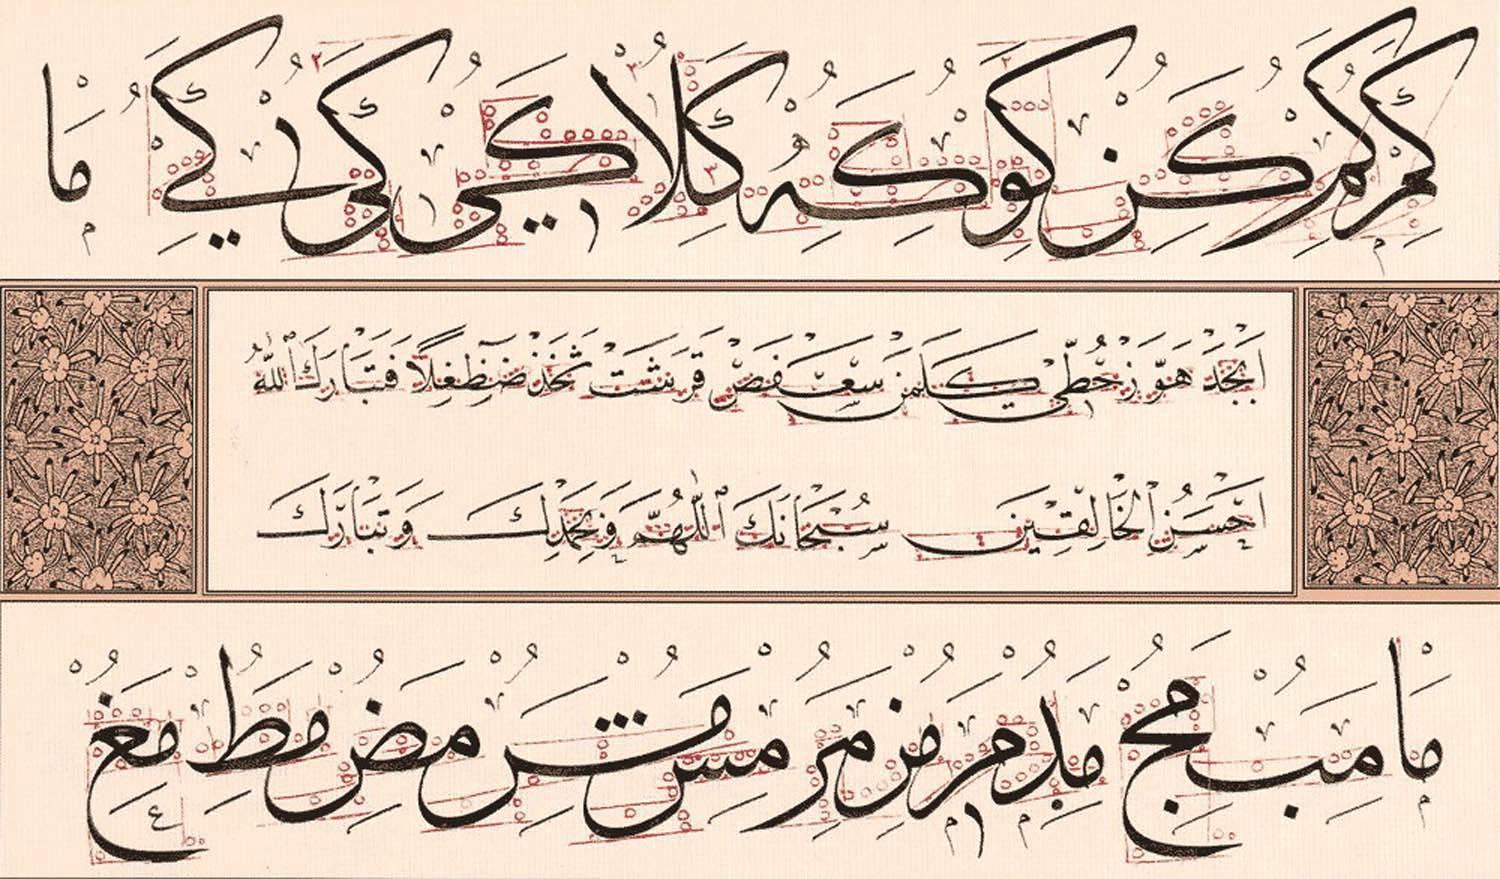 كم كمر كن كو كه كلا كي كي كي ما
ابجد هوز حطي كلمن سعفص قرشت ثخذ ضظغلا فتبارك الله
احسن الخالقين سبحانك اللهم وبحمدك وتبارك
ما مب مج مد مر مز مر مس مش مض مط مغ